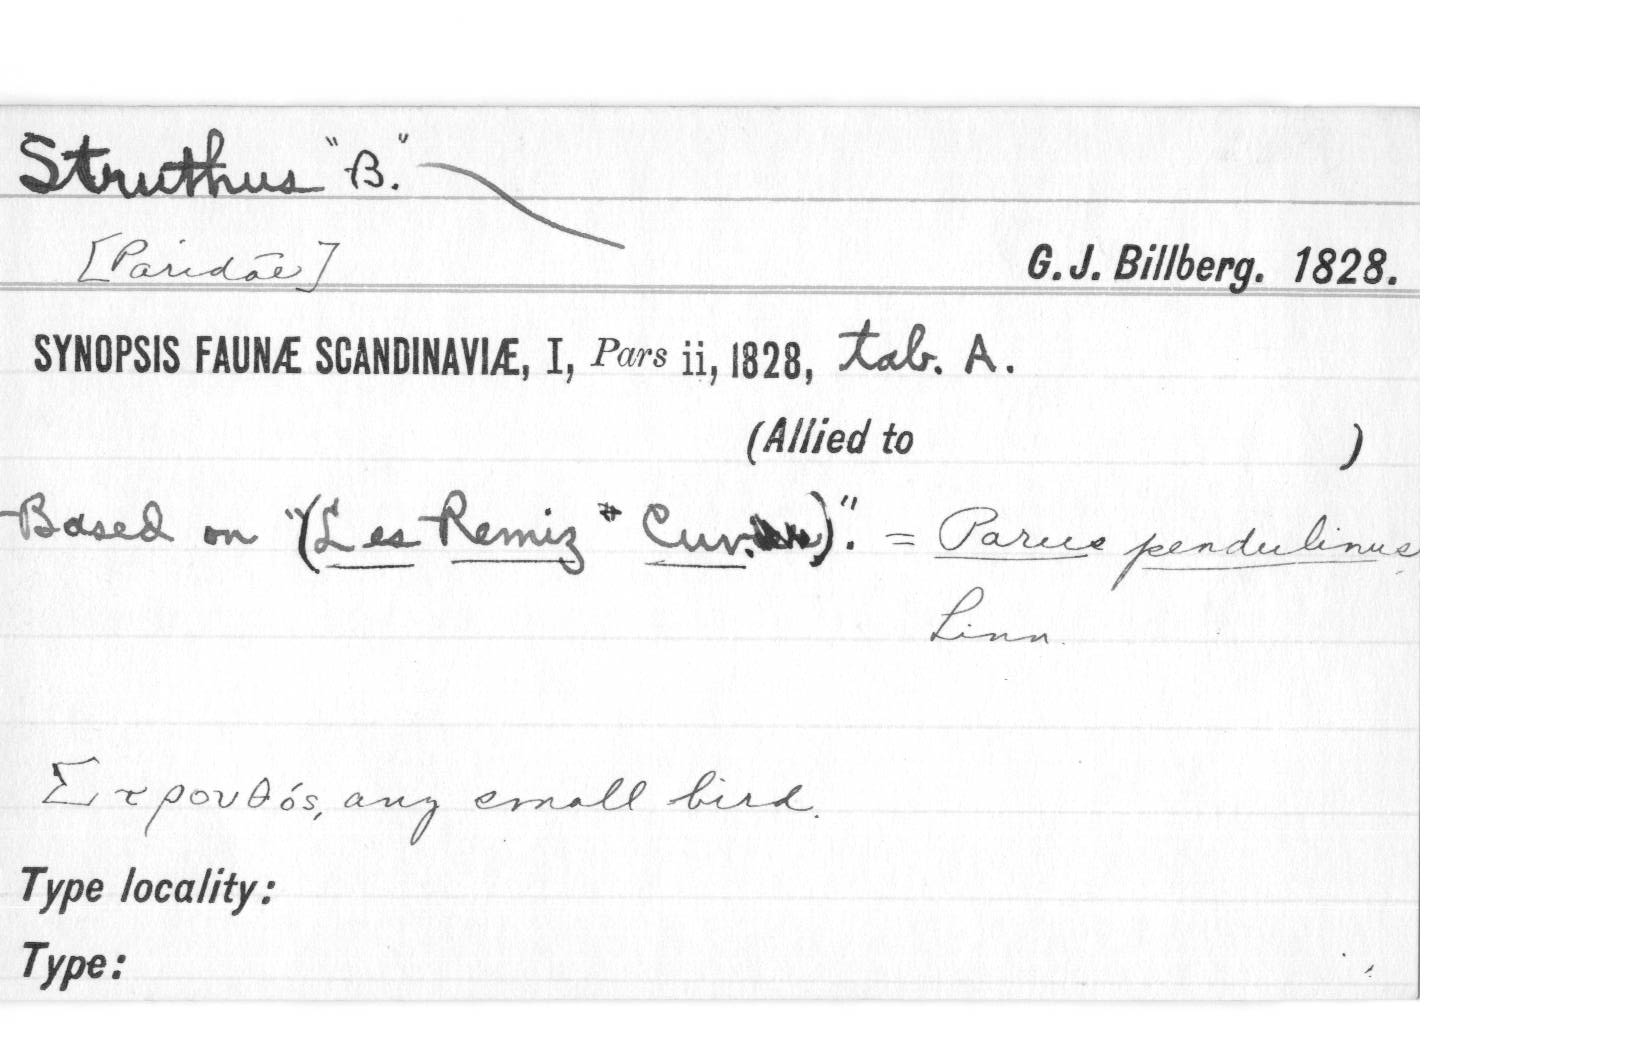 Struthus "B."
[Paridae]
G. J. Billberg. 1828.
SYNOPSIS FAUNÆ SCANDINAVIÆ, I, Pars ii, 1828, tab. A.
(Allied to )
Based on "(Les Remiz * Cuv.)". = Parus pendulinus
Linn.
Στρουθός, any small bird.
Type locality:
Type: